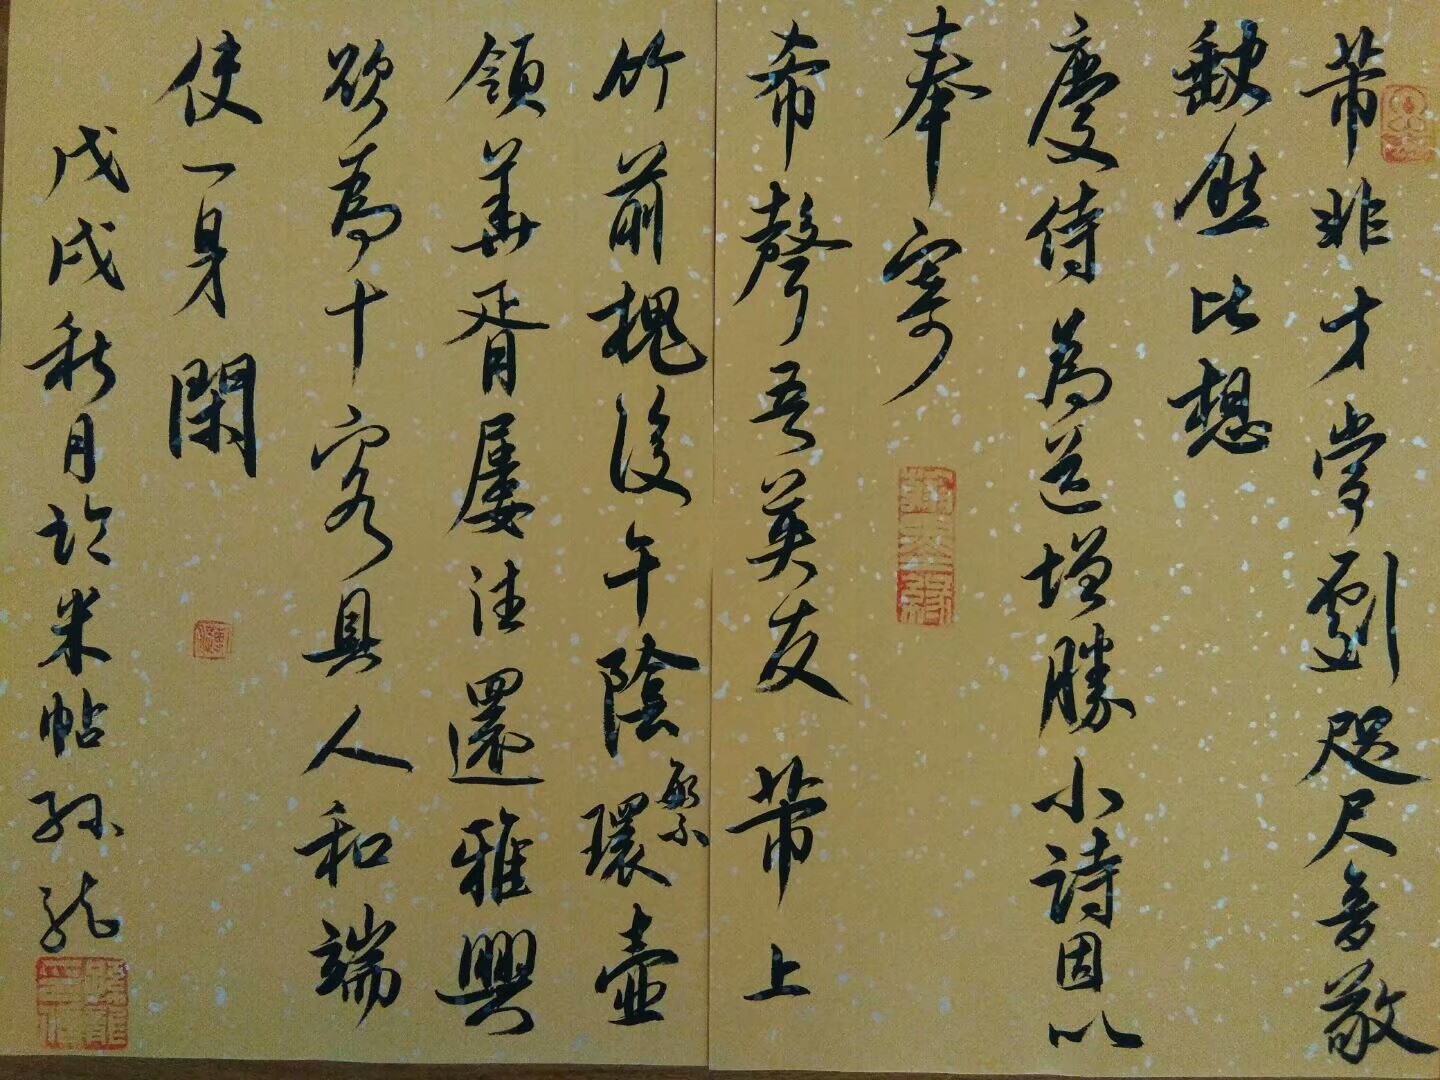 芾非才當劇咫尺音敬
缺然比想
慶侍為道增勝小詩因以
奉寄
希聲吾英友 芾上
竹前槐後午陰繁環壺
領華胥屢往還雅興
欲為十客具人和端
使一身閑
戊戌秋月臨米帖孫龍